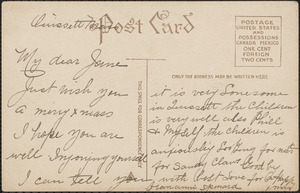 Post Card
My dear Jane
Just wish you
a merry xmass
I hope you are
well Injoying yourself
I can tell you
THIS SPACE FOR CORRESPONDENCE
POSTAGE
UNITED STATES
AND
POSSESSIONS
CANADA MEXICO
ONE CENT
FOREIGN
TWO CENTS
ONLY THE ADDRESS MAY BE WRITTEN HERE
it is very Lonesome
in the Children
is very well also Phill
& Myself. the children is
anxiously Looking for
for Santy Claws. Good by
with Best Love for